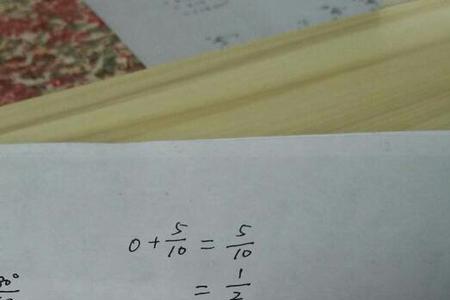 0 + 5/10 = 5/10
= 1/2